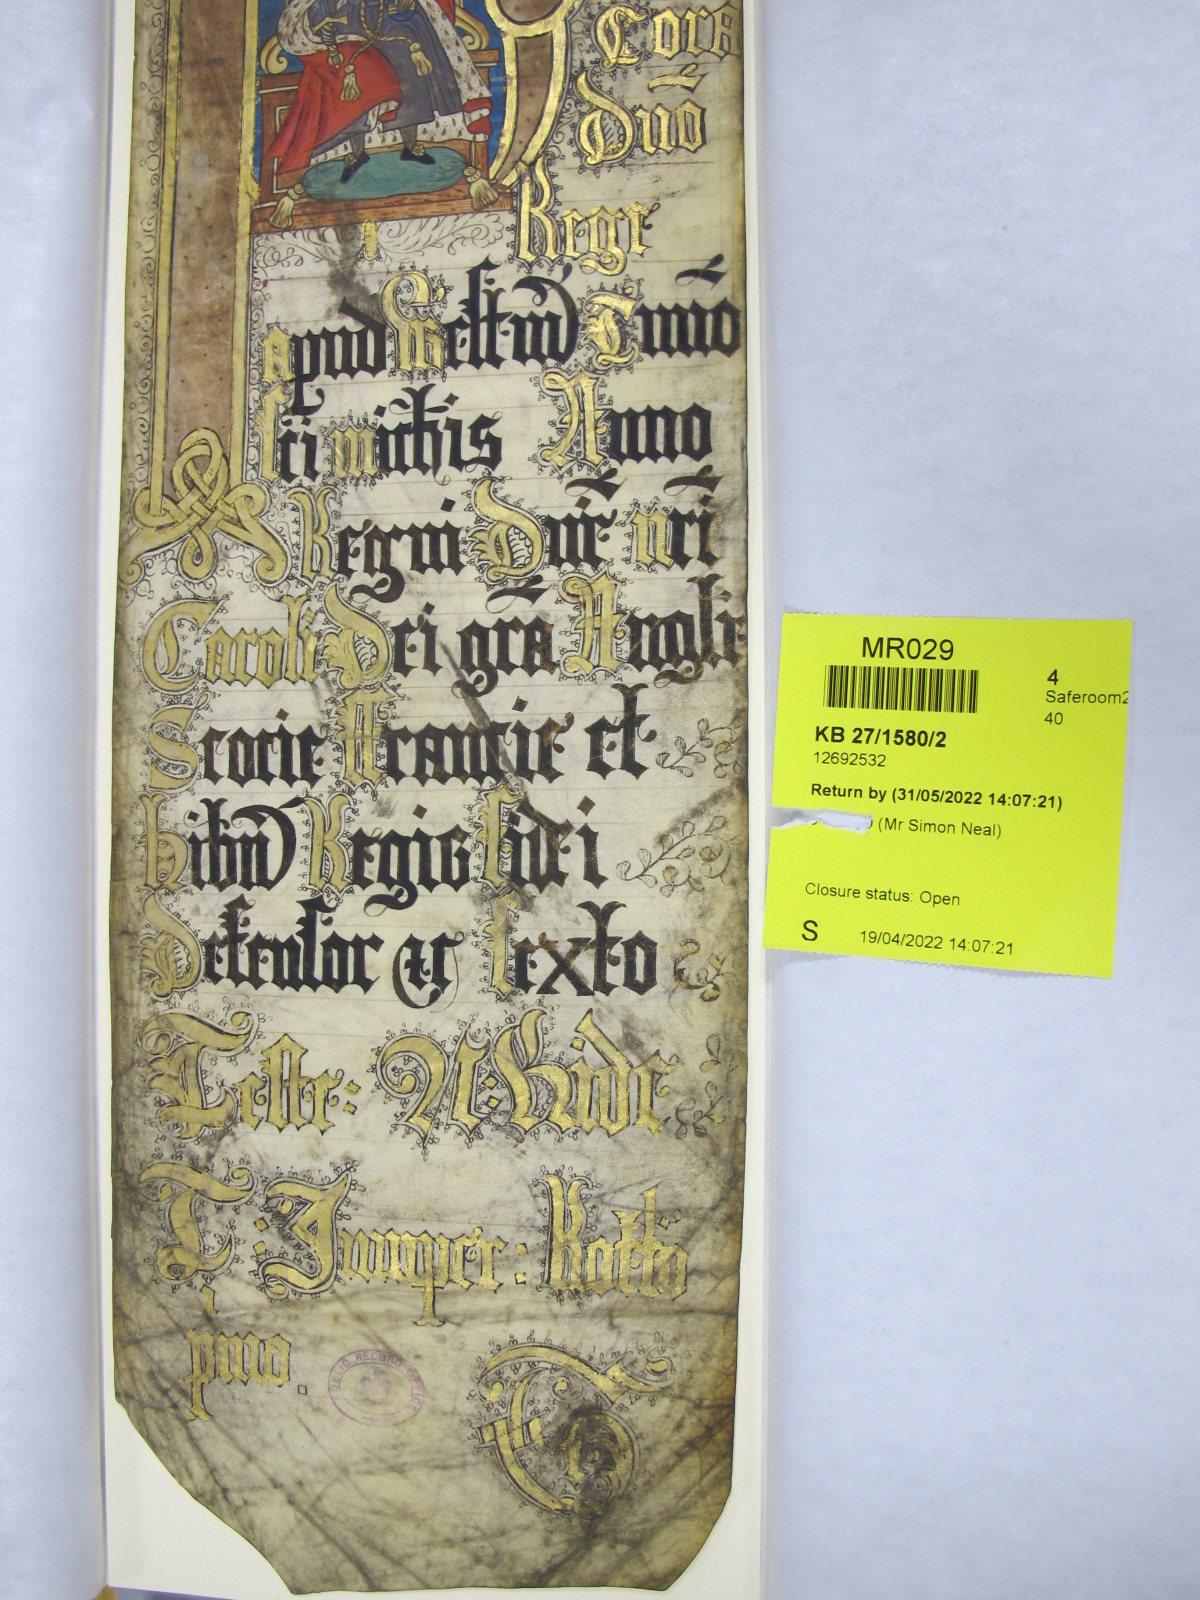 Cora
dño
Rege
apud Westm̄ T'mio
sci mich̄is Anno
Regni Dñi nr̄i
Caroli Dei grã Anglie
Scocie Francie et
hib̄n Regis Fidei
Defensor &c sexto
Teste: N: Hide
T: Jumper: Rotto
pmo
MR029
4
Saferoom2
40
KB 27/1580/2
12692532
Return by (31/05/2022 14:07:21)
(Mr Simon Neal)
Closure status: Open
S 19/04/2022 14:07:21